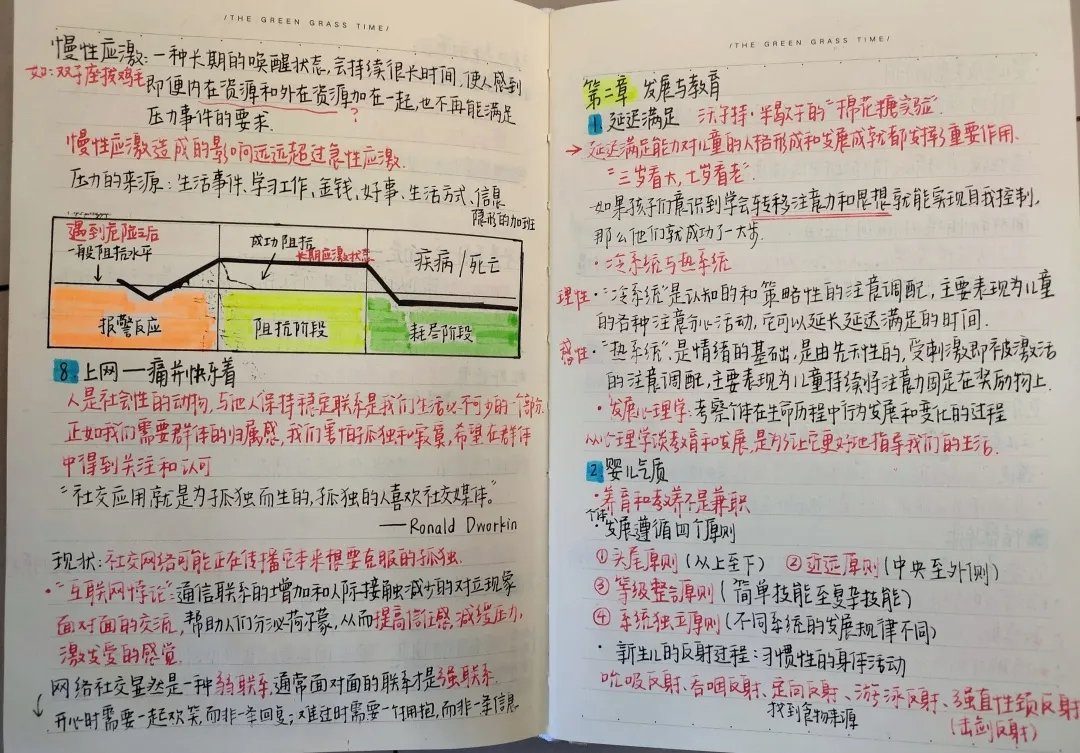 /THE GREEN GRASS TIME/
慢性应激:一种长期的唤醒状态,会持续很长时间,使人感到
如:双子座拔鸡毛 即便内在资源和外在资源加在一起,也不再能满足
压力事件的要求. ?
慢性应激造成的影响远远超过急性应激.
压力的来源:生活事件、学习工作、金钱、好事、生活方式、信息
隐形的加班
遇到危险之后
一般阻抗水平
成功阻抗
长期应激状态
疾病/死亡
报警反应
阻抗阶段
耗尽阶段
8.上网——痛并快乐着
人是社会性的动物,与他人保持稳定联系是我们生活必不可少的一部分.
正如我们需要群体的归属感,我们害怕孤独和寂寞,希望在群体
中得到关注和认可
“社交应用就是为孤独而生的,孤独的人喜欢社交媒体。”
——Ronald Dworkin
现状:社交网络可能正在传播它本来想要克服的孤独.
·“互联网悖论”:通信联系的增加和人际接触减少的对应现象
面对面的交流,帮助人们分泌荷尔蒙,从而提高信任感,减缓压力,
激发爱的感觉.
网络社交显然是一种弱联系,通常面对面的联系才是强联系.
开心时需要一起欢笑,而非一条回复;难过时需要一个拥抱,而非一条信息
/THE GREEN GRASS TIME/
第二章 发展与教育
1.延迟满足 沃尔特·米歇尔的“棉花糖实验”
→延迟满足能力对儿童的人格形成和发展成就都发挥了重要作用.
“三岁看大,七岁看老”.
如果孩子们意识到学会转移注意力和思想就能实现自我控制,
那么他们就成功了一大步.
·冷系统与热系统
理性·“冷系统”是认知的和策略性的注意调配,主要表现为儿童
的各种注意分心活动,它可以延长延迟满足的时间.
感性·“热系统”是情绪的基础,是由先示性的,受刺激即被激活
的注意调配,主要表现为儿童持续将注意力固定在奖励物上.
·发展心理学:考察个体在生命历程中行为发展和变化的过程
从心理学谈教育和发展,是为了让它更好地指导我们的生活.
2.婴儿气质
·养育和教养不是兼职
个体
·发展遵循四个原则
①头尾原则(从上至下) ②近远原则(中央至外侧)
③等级整合原则(简单技能至复杂技能)
④系统独立原则(不同系统的发展规律不同)
·新生儿的反射过程:习惯性的身体活动
吮吸反射、吞咽反射、定向反射、游泳反射、强直性颈反射
找到食物来源 (击剑反射)